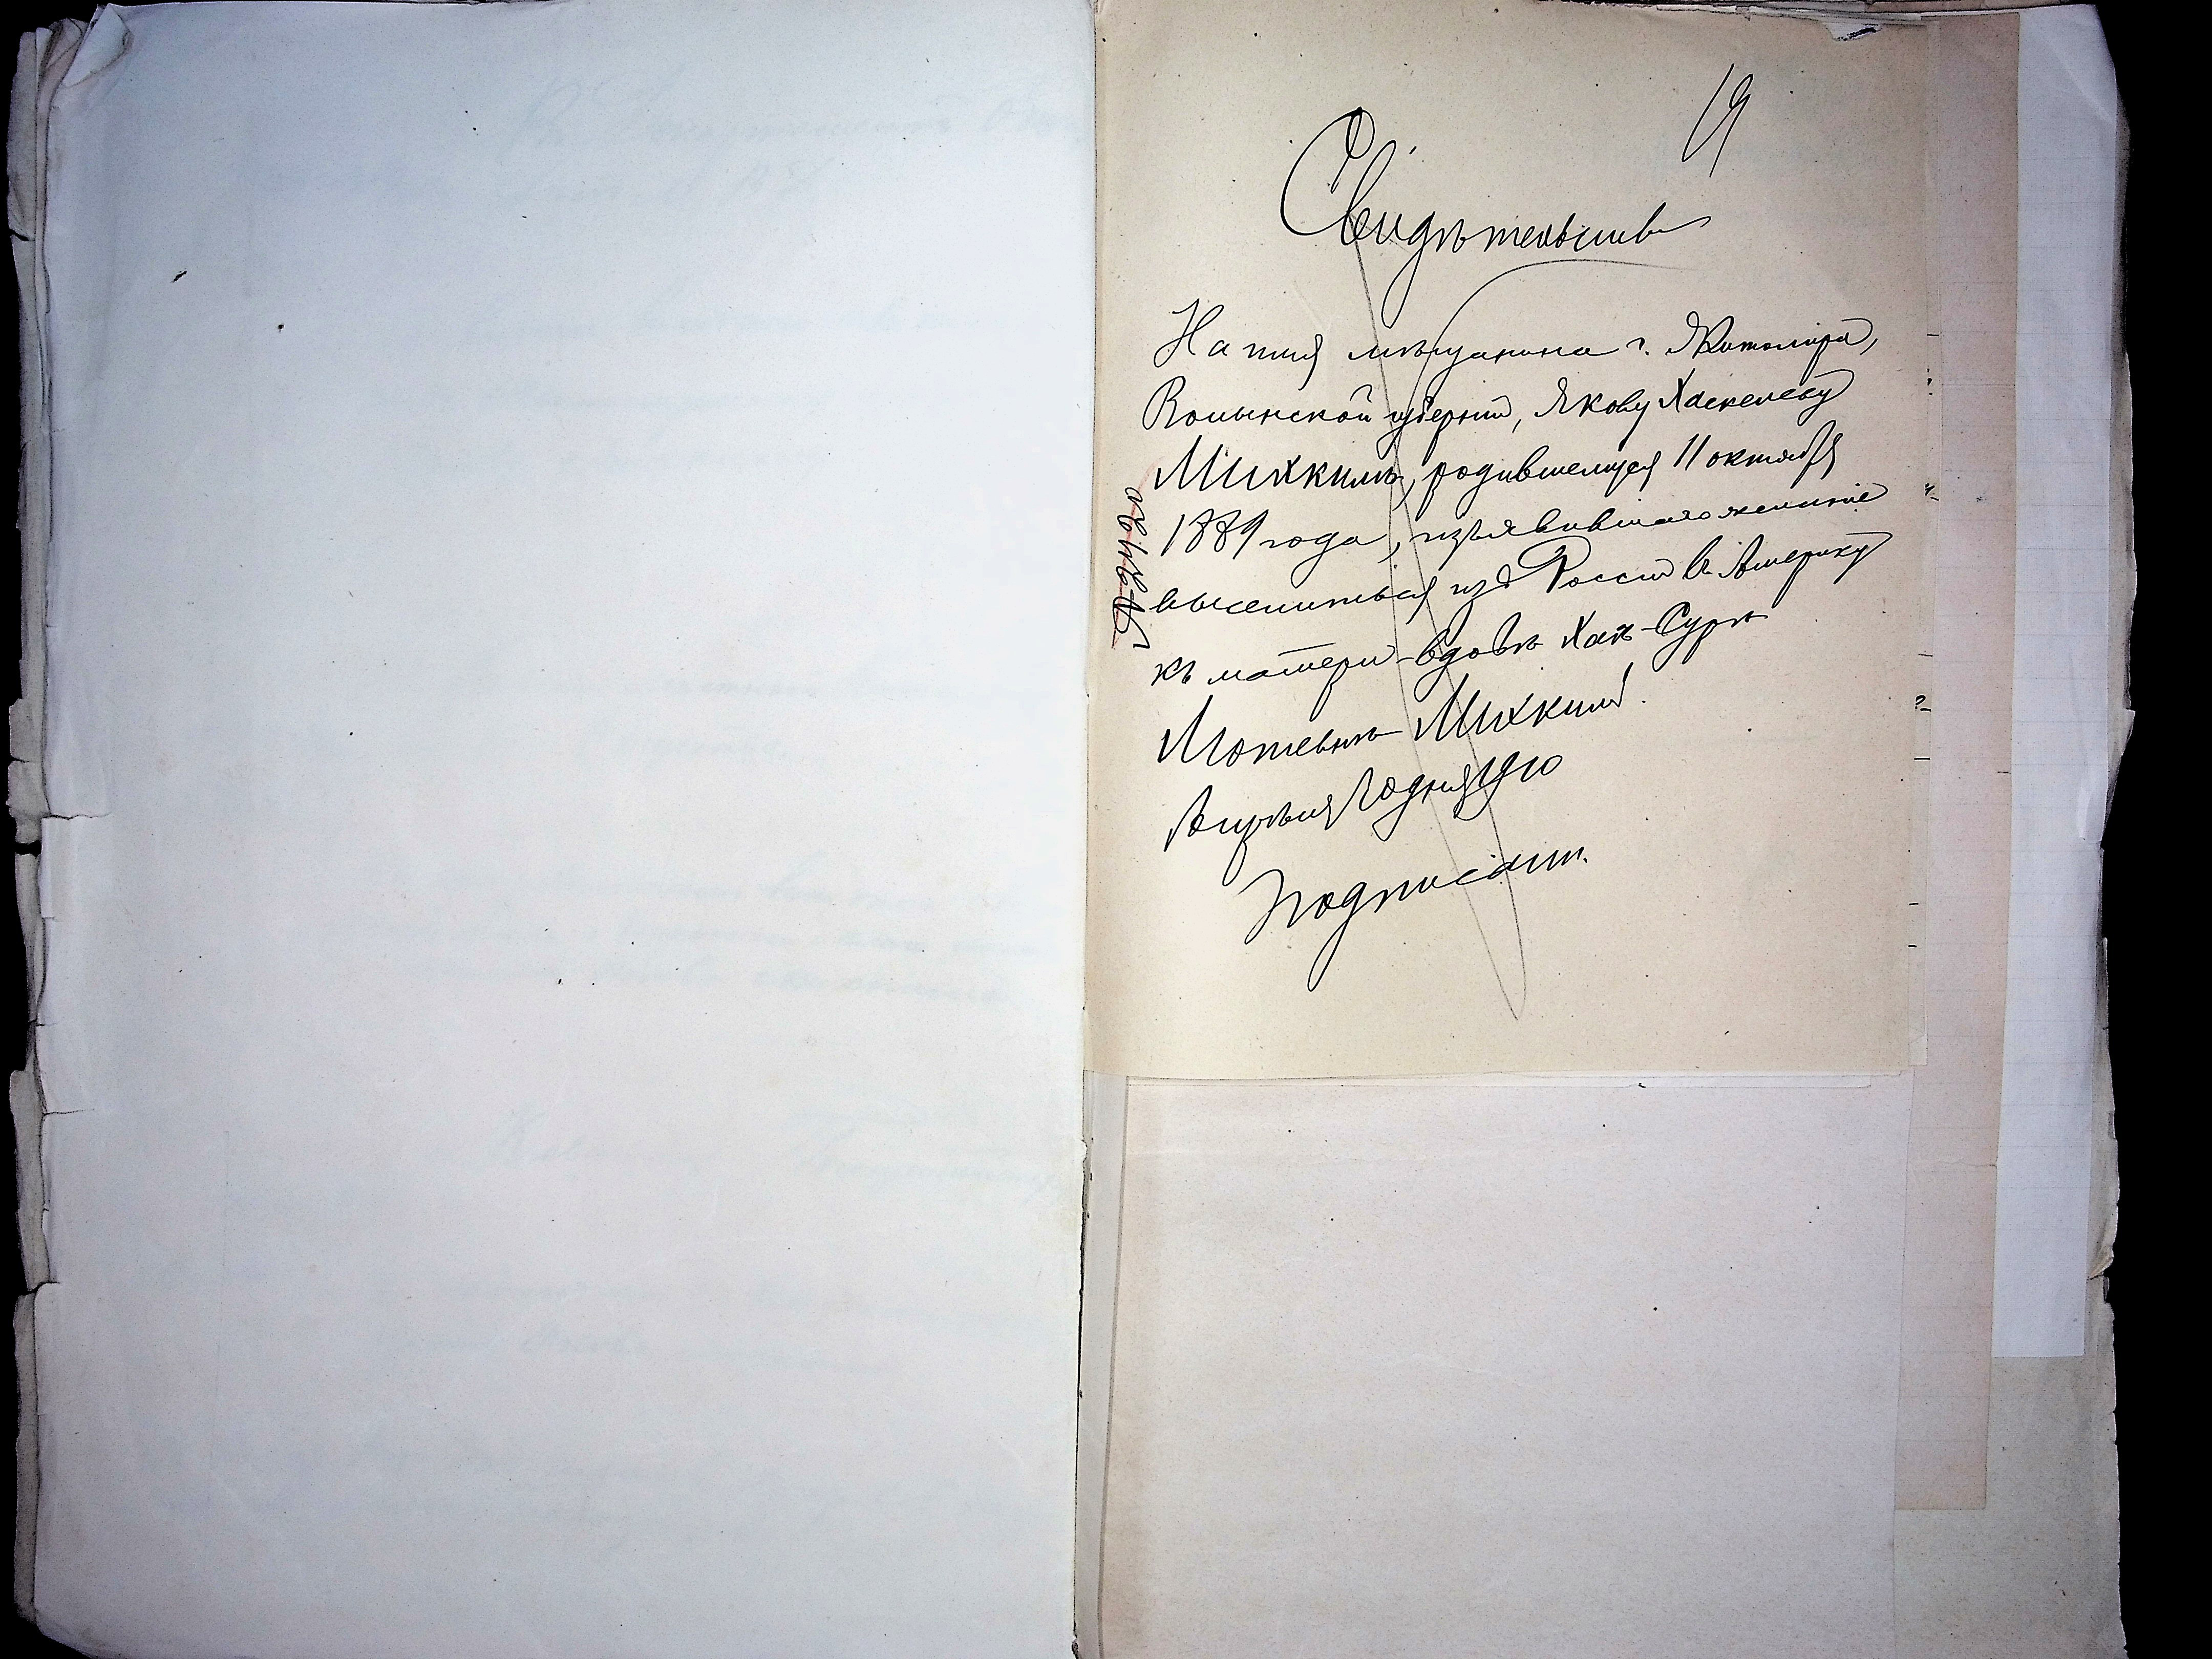 19
Свидѣтельство
На имя мѣщанина г. Житомира,
Волынской губерніи, Якову Хаскелеву
Михкинъ, родившемуся 11 октября
1889 года, изъявившаго желаніе
выселиться изъ Россіи въ Америку
къ матери-вдовѣ Хаѣ-Сурѣ
Мотевнѣ Михкиной.
Апрѣля 1910
Подписали.